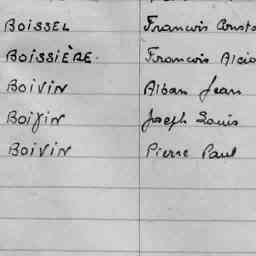 BOISSEL François Const
BOISSIÈRE. François Alci
BOIVIN Alban Jean
BOIVIN Joseph Louis
BOIVIN Pierre Paul